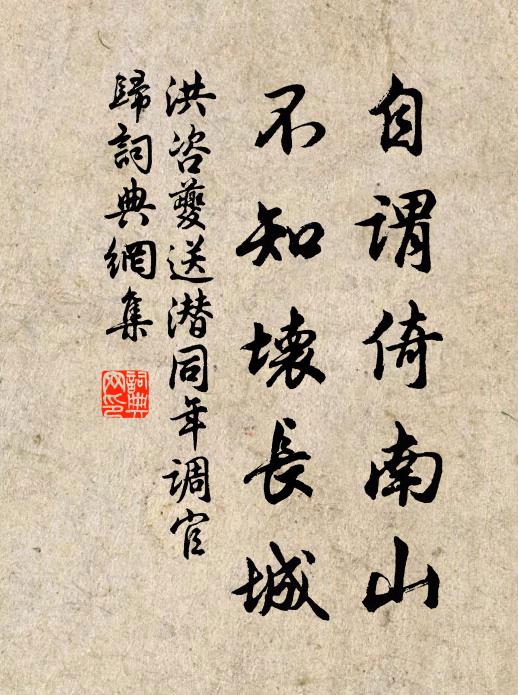 自謂倚南山
不知壞長城
洪咨夔送潜同年調官
歸詞典網集
詞典網印